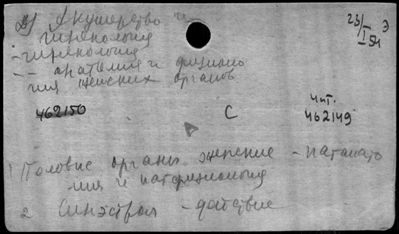 а) Акушерство и
гинекология
23/I-54 Э
- гинекология
-- анатомия и физиоло
гия женских органов
462150
С
чит.
462149
А
1 Половые органы женские - патанато
мия и патфизиология
2 Синэстрол - действие